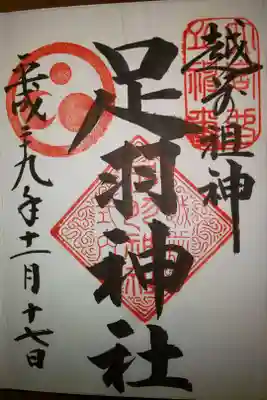 越の祖神
足羽神社
平成二九年十一月十七日